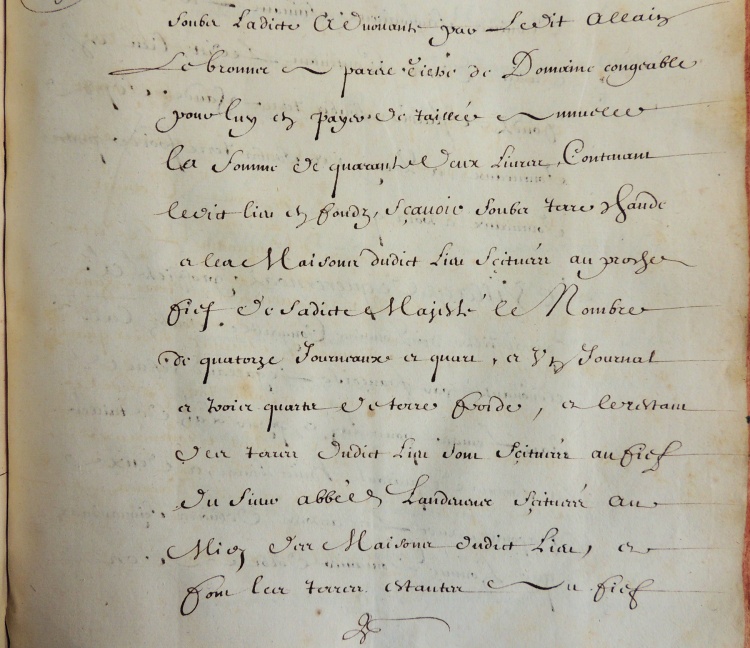 soubz ladicte advouante par ledit Allain
Le bronnec a pareil tiltre de Domaine congeable
pour luy en payer de taillée annuelle
la somme de quarante deux livres, Contenant
ledict lieu en fondz, sçavoir soubz terre chaude
et les Maisons dudict lieu scituées au proche
fief de sadicte Majesté le Nombre
de quatorze Journeaux et quart, et Un Journal
et trois quartz de terre froide, et le restant
des terres dudict lieu sont scituées au fief
du sieur abbé de Landevenec scituées au
Midy des Maisons dudict lieu, et
sont les terres estantes au fief